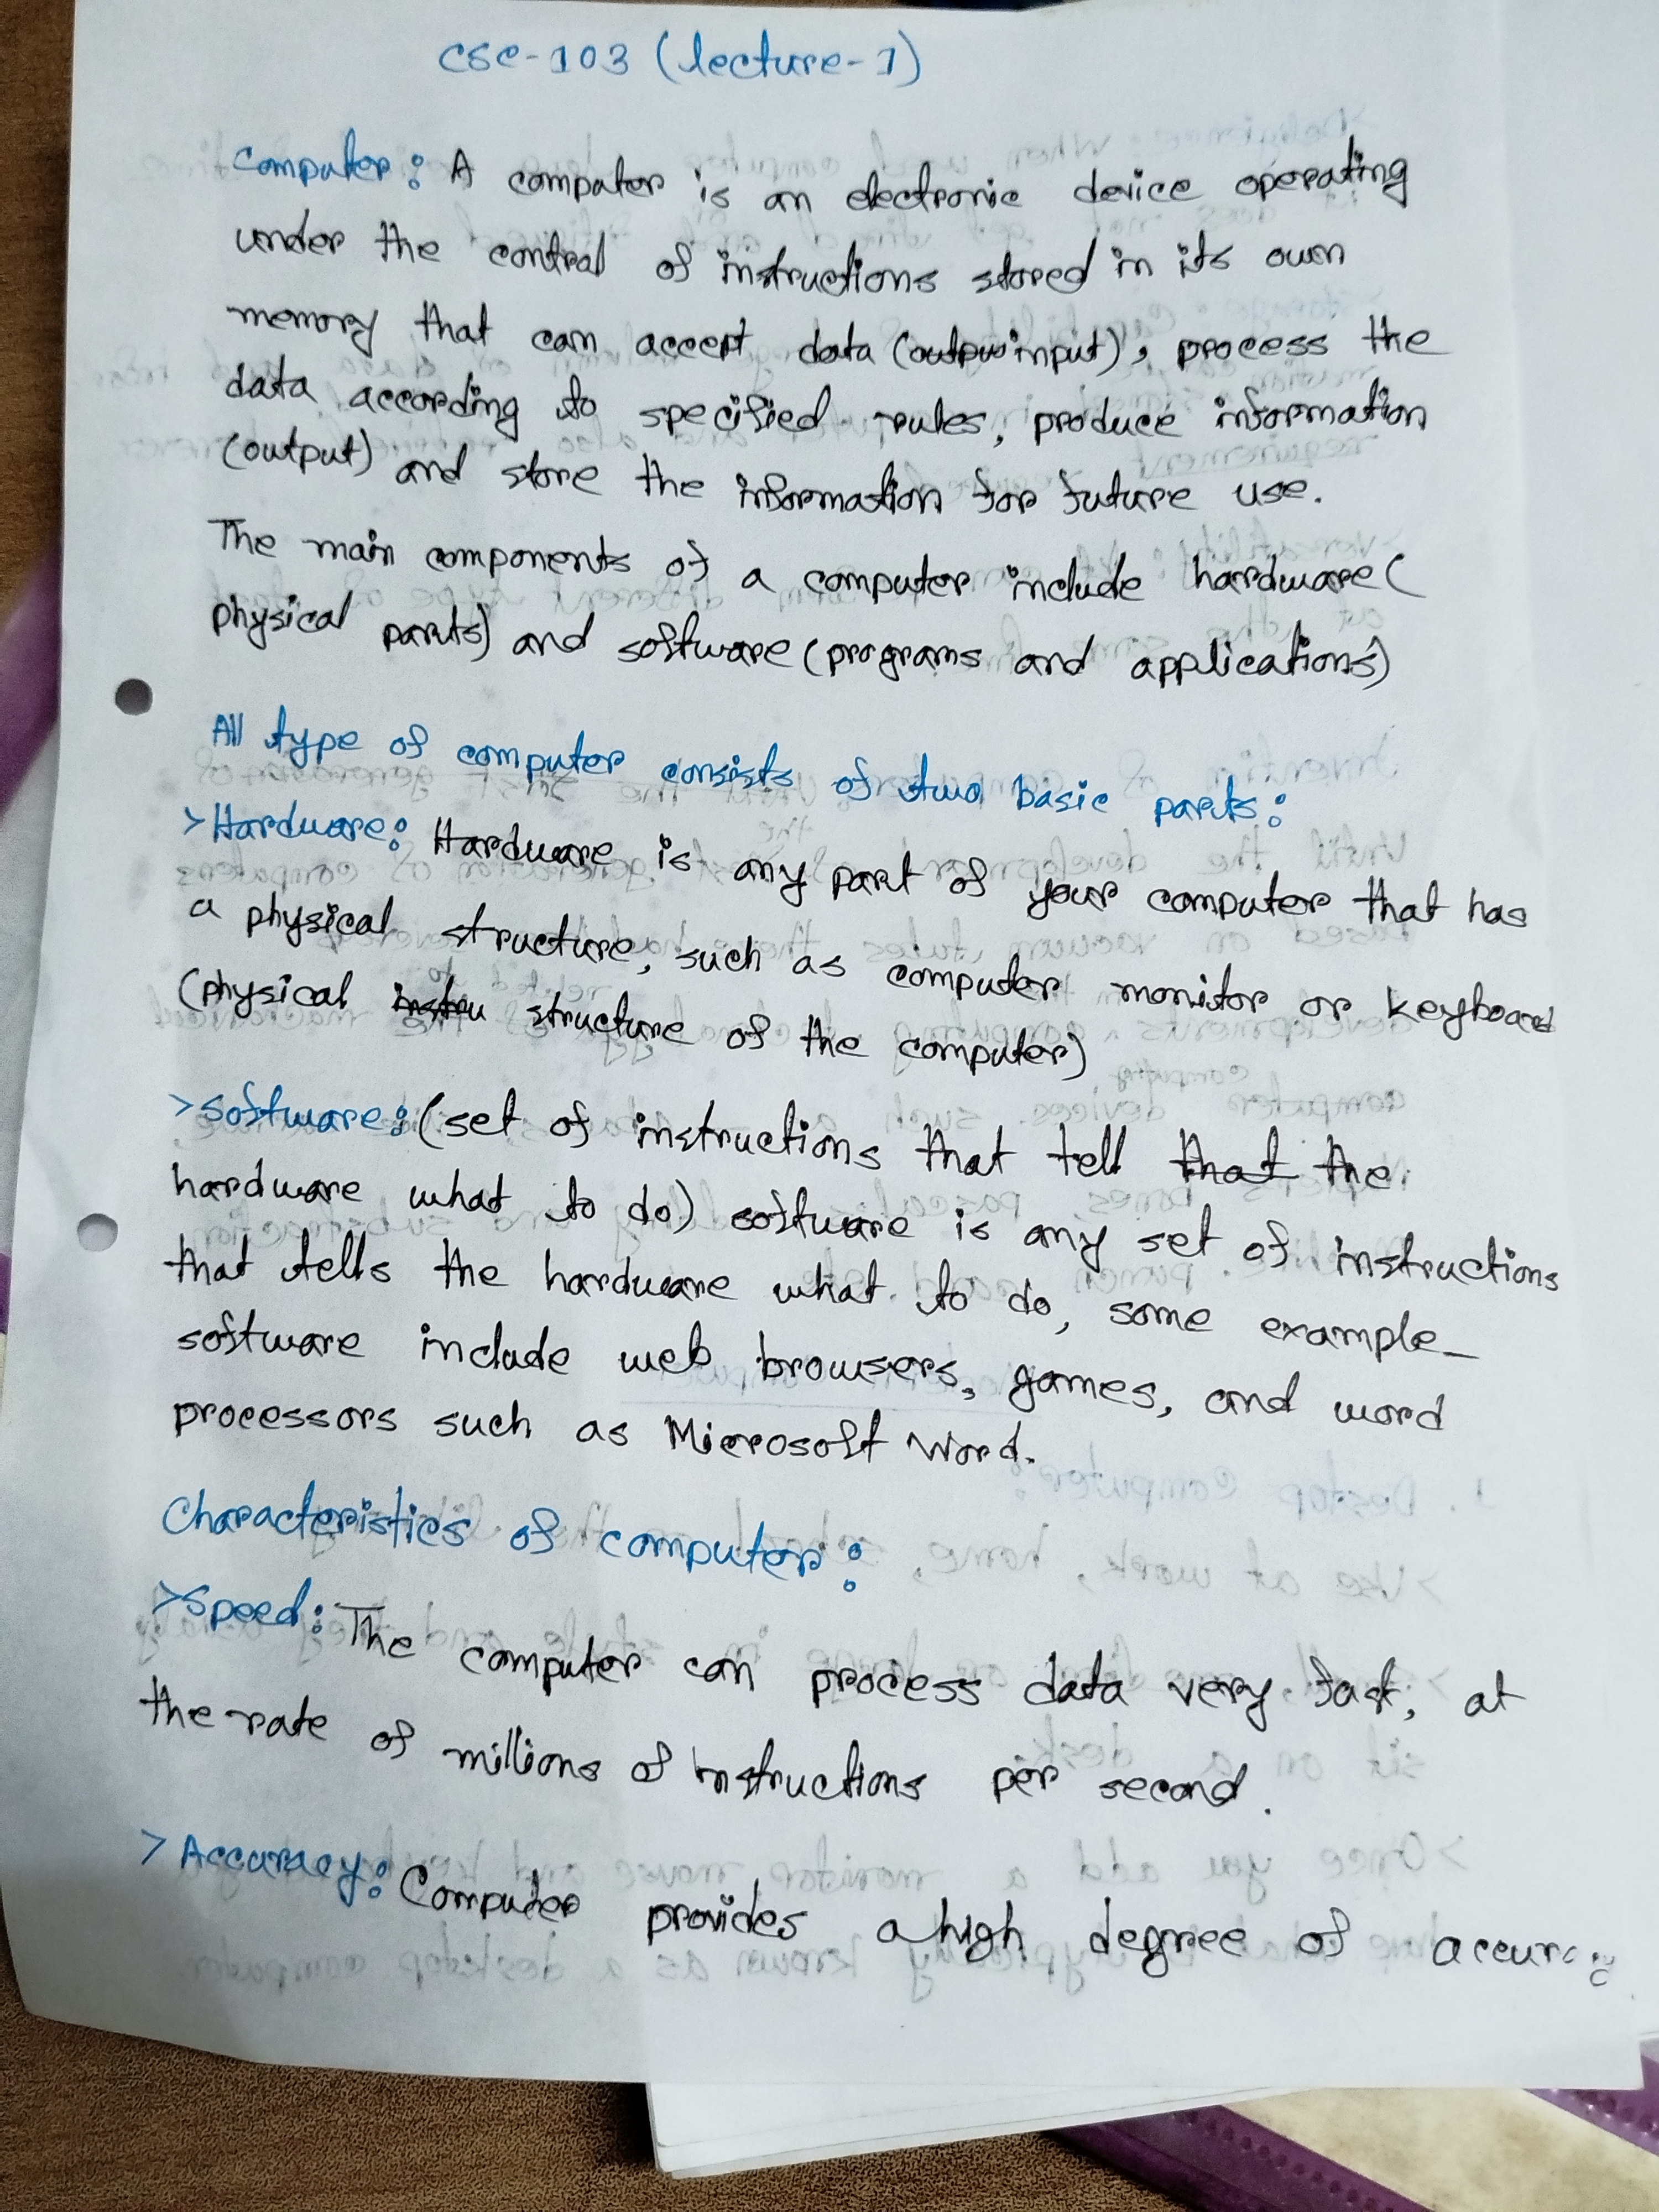 CSE-103 (lecture-1)
Computer: A computer is an electronic device operating
under the control of instructions stored in its own
memory that can accept data (outpu input), process the
data according to specified rules, produce information
(output) and store the information for future use.
The main components of a computer include hardware (
physical parts) and software (programs and applications)
All type of computer consists of two basic parts:
>Hardware: Hardware is any part of your computer that has
a physical structure, such as computer monitor or keyboard
(physical instru structure of the computer)
>Software: (set of instructions that tell that the
hardware what to do) software is any set of instructions
that tells the hardware what to do, some example_
software include web browsers, games, and word
processors such as Microsoft Word.
Characteristics of computer:
>Speed: The computer can process data very fast, at
the rate of millions of instructions per second.
> Accuracy: Computer provides a high degree of